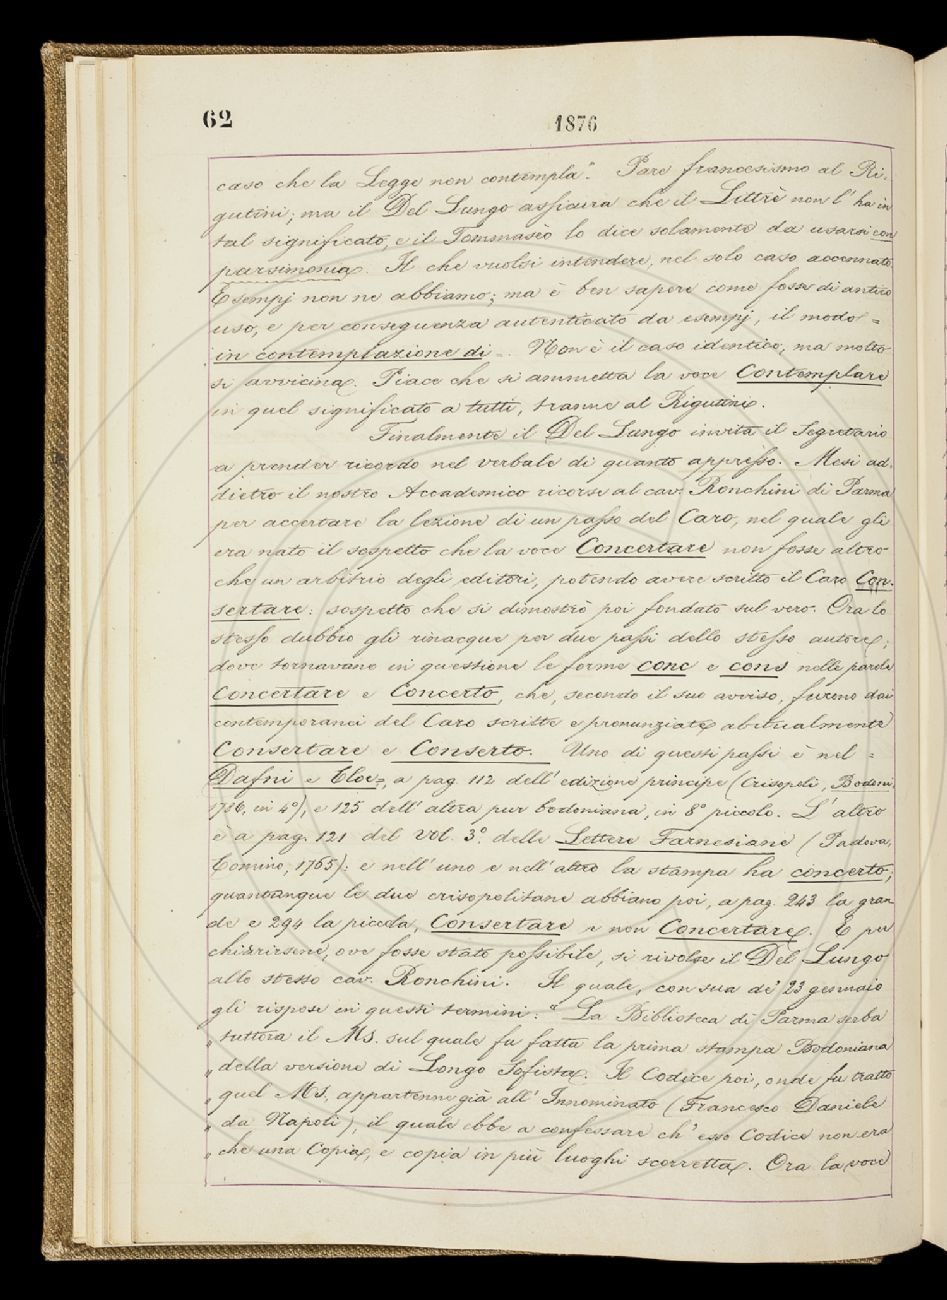 62
1876
caso che la Legge non contempla". Pare francesismo al Ri-
gutini; ma il Del Lungo assicura che il Littrè non l'ha in
tal significato, e il Tommasèo lo dice solamente da usarsi con
parsimonia. Il che vuolsi intendere, nel solo caso accennato.
Esempj non ne abbiamo; ma è ben sapere come fosse di antico
uso, e per conseguenza autenticato da esempj, il modo =
in contemplazione di =. Non è il caso identico, ma molto
si avvicina. Piace che si ammetta la voce Contemplare
in quel significato a tutti, tranne al Rigutini.
Finalmente il Del Lungo invita il Segretario
a prender ricordo nel verbale di quanto appresso. Mesi ad-
dietro il nostro Accademico ricorse al cav. Ronchini di Parma
per accertare la lezione di un passo del Caro, nel quale gli
era nato il sospetto che la voce Concertare non fosse altro
che un arbitrio degli editori, potendo avere scritto il Caro Con-
sertare: sospetto che si dimostrò poi fondato sul vero. Ora lo
stesso dubbio gli rinacque per due passi dello stesso autore;
dove tornavano in questione le forme conc e cons nelle parole
Concertare e Concerto, che, secondo il suo avviso, furono dai
contemporanei del Caro scritte e pronunziate abitualmente
Consertare e Conserto. Uno di questi passi è nel =
Dafni e Cloe=, a pag. 112 dell'edizione principe (Crisopoli, Bodoni,
1786, in 4°), e 125 dell'altra pur bodoniana, in 8° piccolo. L'altro
è a pag. 121 del vol. 3° delle Lettere Farnesiane (Padova,
Comino, 1765): e nell'uno e nell'altro la stampa ha concerto;
quantunque le due crisopolitane abbiano poi, a pag. 243 la gran
de e 294 la piccola, Consertare e non Concertare. E per
chiarirsene, ove fosse stato possibile, si rivolse il Del Lungo
allo stesso cav. Ronchini. Il quale, con sua de' 23 gennaio
gli rispose in questi termini: "La Biblioteca di Parma serba
"tuttora il MS. sul quale fu fatta la prima stampa Bodoniana
"della versione di Longo Sofista. Il Codice poi, onde fu tratto
"quel MS, appartenne già all'Innominato (Francesco Daniele
"da Napoli), il quale ebbe a confessare ch'esso Codice non era
"che una Copia, e copia in più luoghi scorretta. Ora la voce